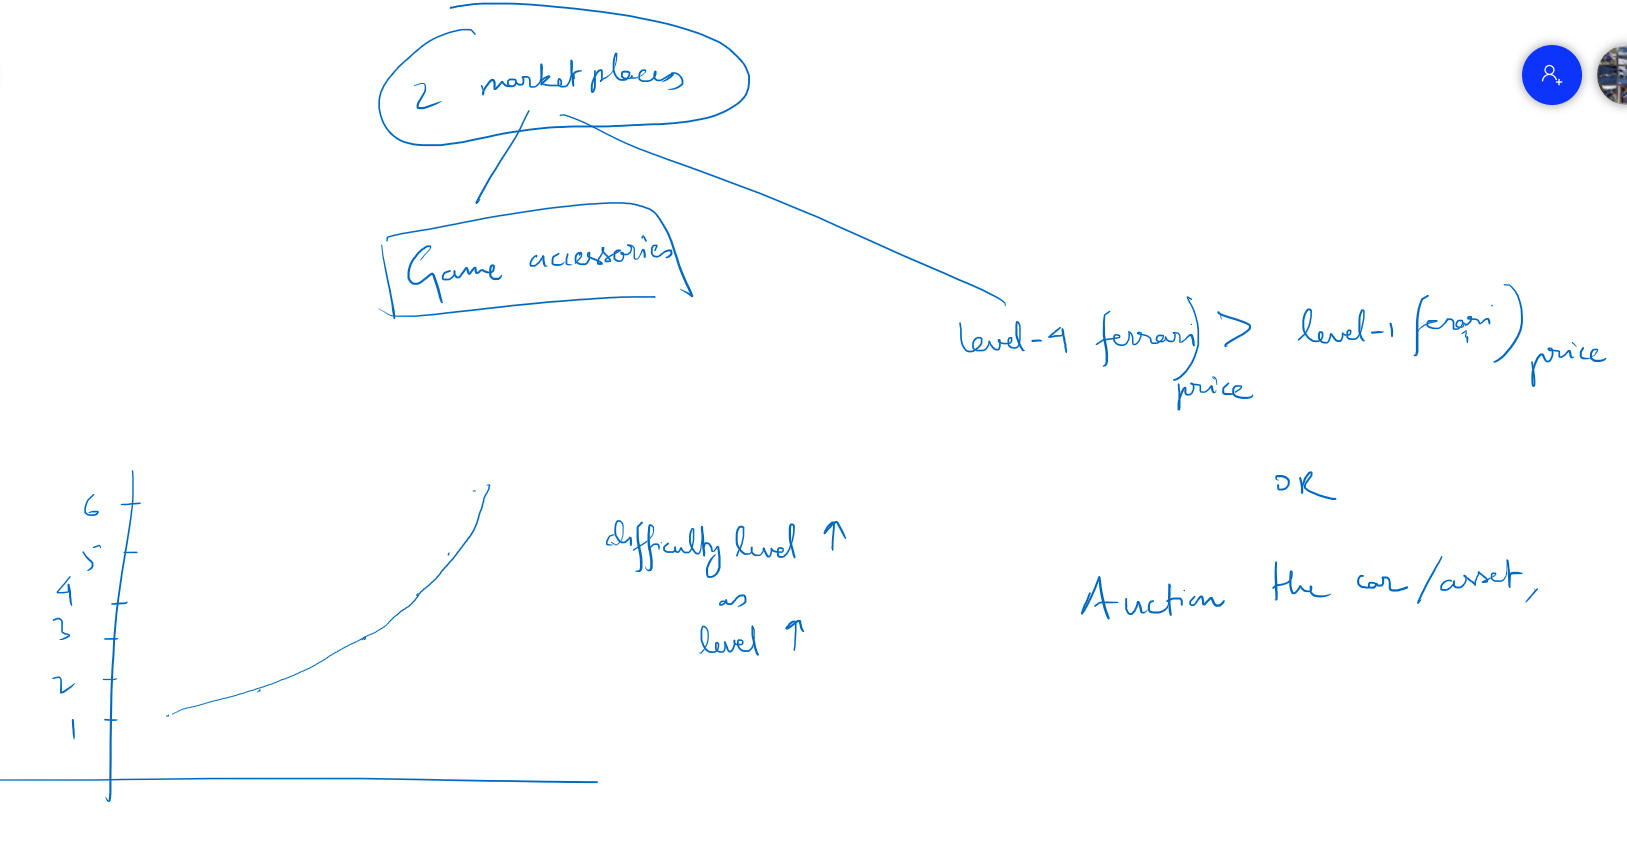 2 marketplaces
Game accessories
level-4 ferrari) > level-1 ferari)
price
price
OR
Auction the car/asset,
6
5
4
3
2
1
difficulty level ↑
as
level ↑